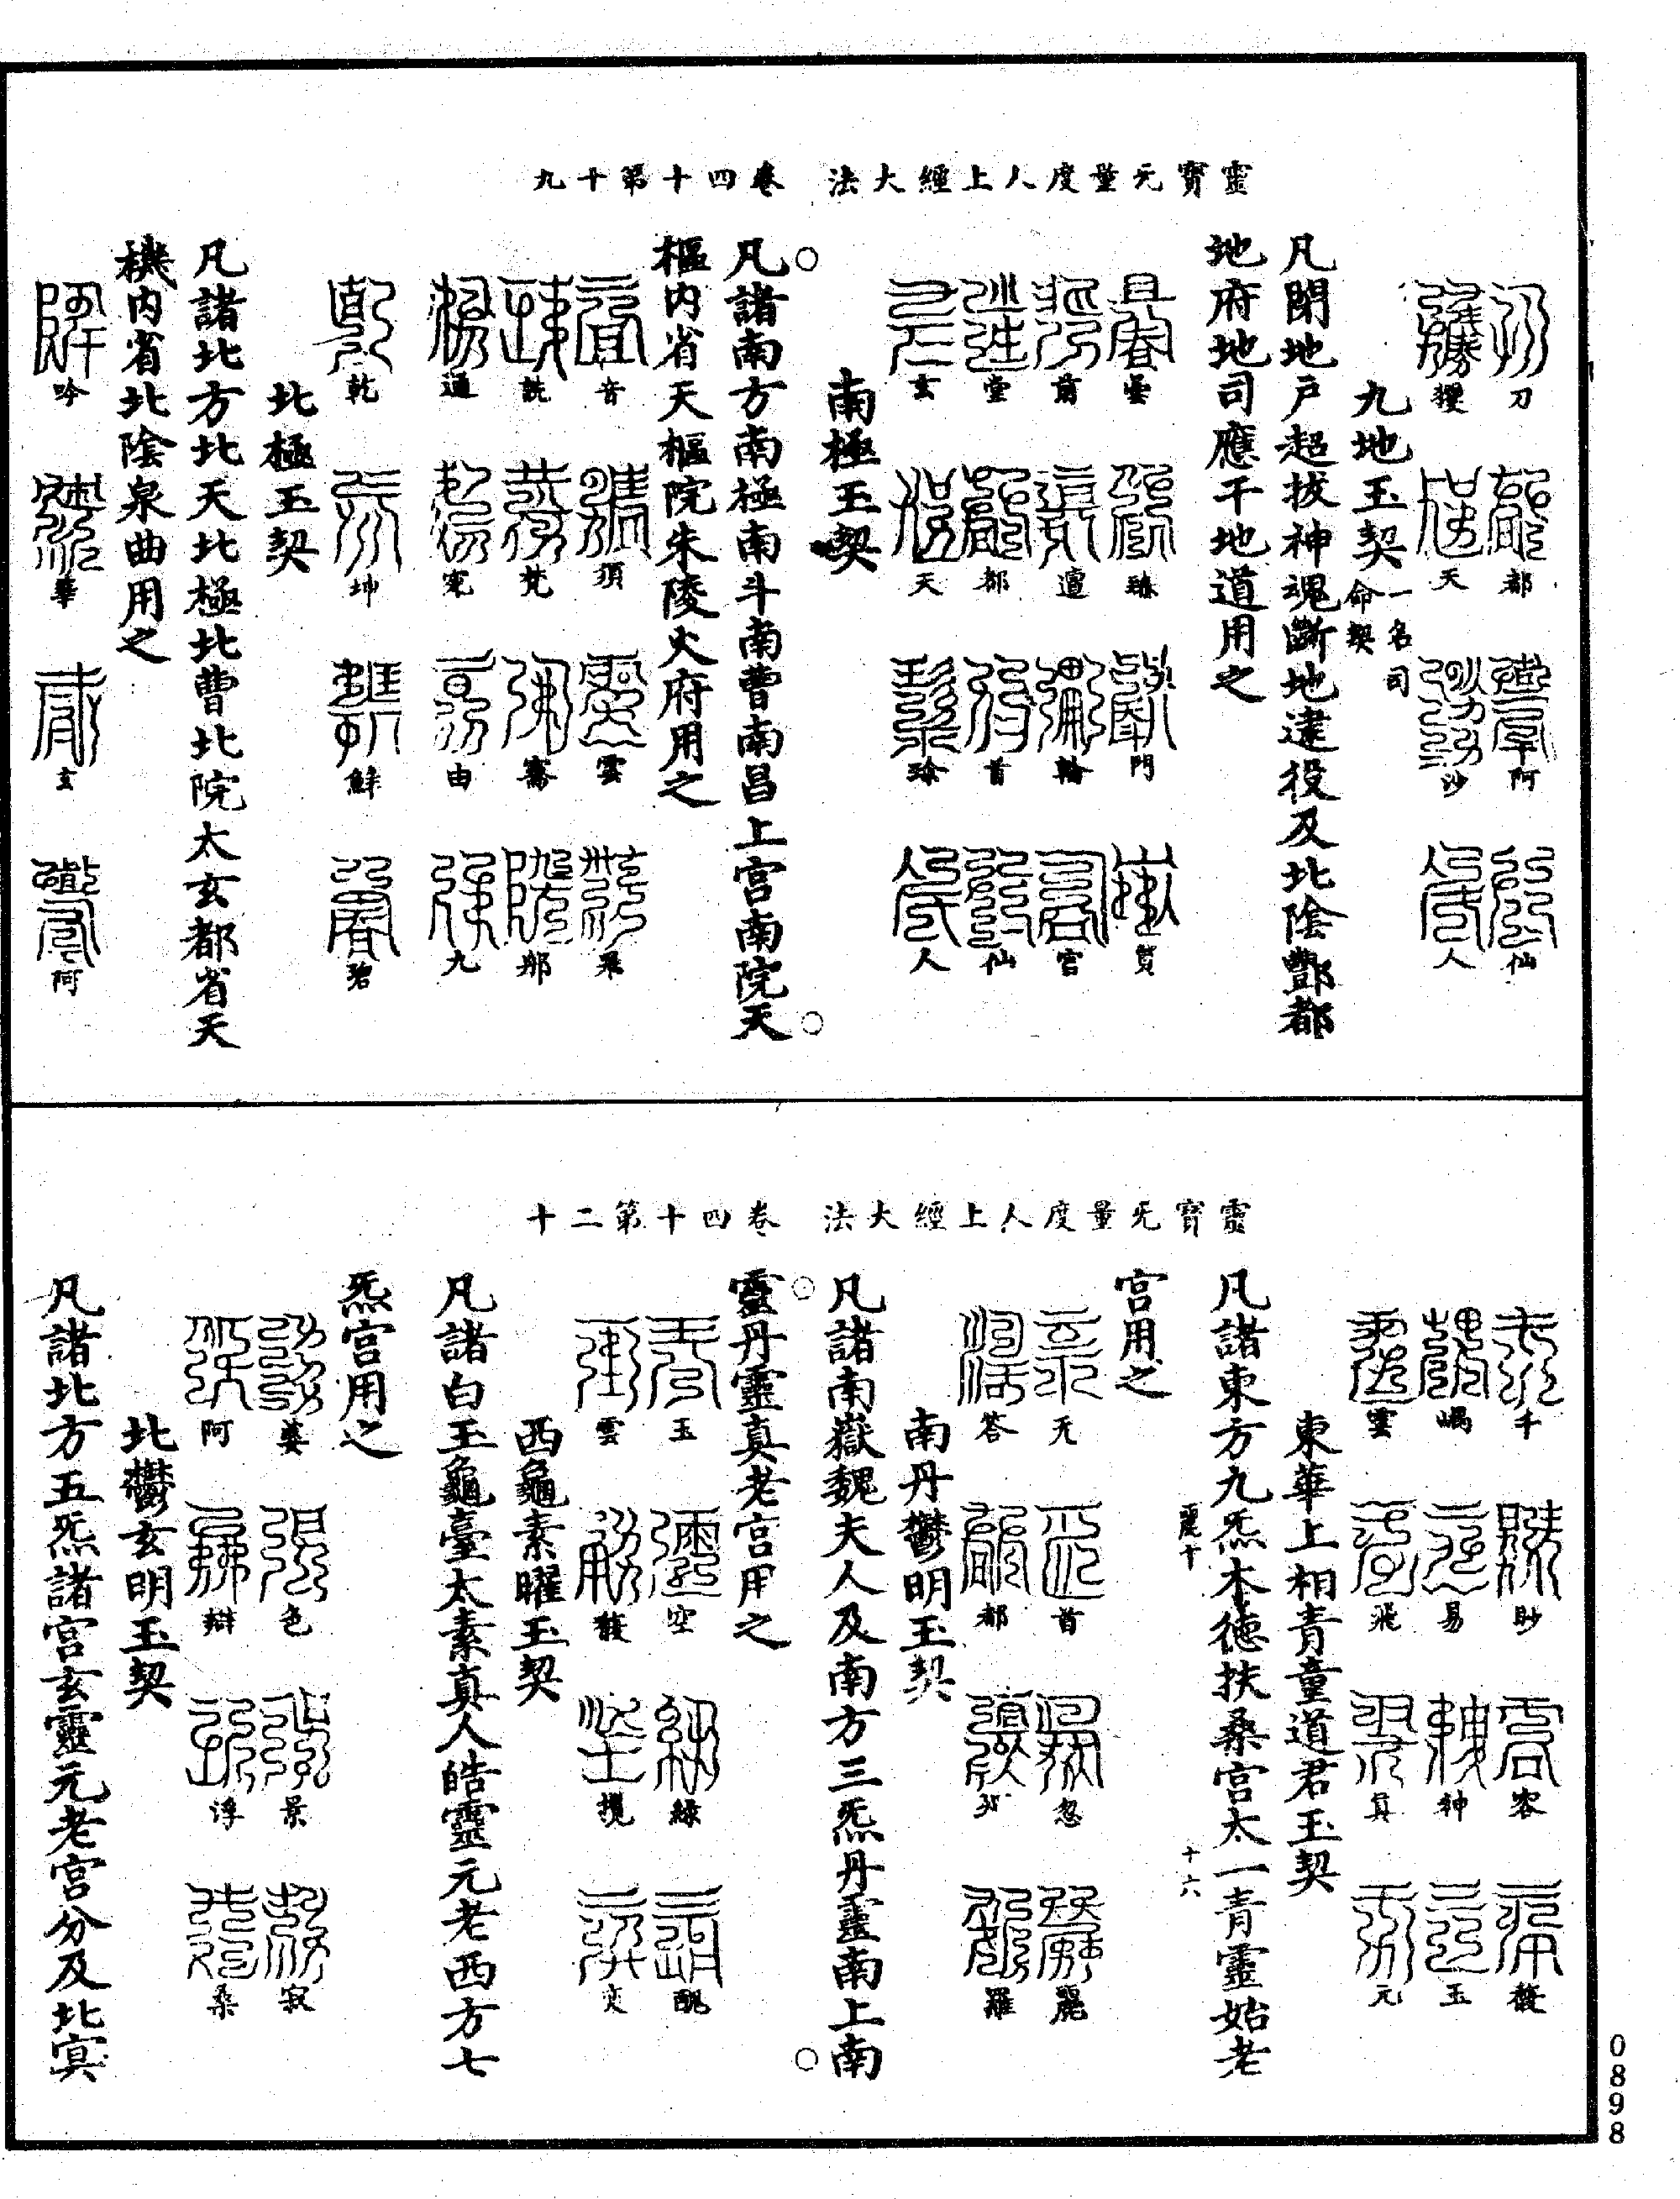 靈寶无量度人上經大法　卷四十第十九
刀　都　阿　仙
玃　天　沙　人
九地玉契一名司命契
凡開地戶超拔神魂斷地逮役及北陰酆都
地府地司應干地道用之
曇　臻　門　質
薺　邅　輪　宮
堂　都　首　仙
玄　天　珍　人
南極玉契
凡諸南方南極南斗南曹南昌上宮南院天
樞內省天樞院朱陵火府用之
音　須　雲　飛
詵　梵　騫　那
通　寃　由　九
乾　坤　鮮　碧
北極玉契
凡諸北方北天北極北曹北院太玄都省天
機內省北陰泉曲用之
吟　華　玄　阿
靈寶无量度人上經大法　卷四十第二十
千　眇　容　馥
嵎　易　神　玉
雲　飛　真　元
東華上相青童道君玉契
凡諸東方九炁木德扶桑宮太一青靈始老
麗十　十六
宮用之
无　首　忽　麗
答　都　邪　羅
南丹鬱明玉契
凡諸南嶽魏夫人及南方三炁丹靈南上南
靈丹靈真老宮用之
玉　空　綠　醜
雲　馥　攬　奕
西龜素曜玉契
凡諸白玉龜臺太素真人皓靈元老西方七
炁宮用之
婆　色　景　寂
阿　辯　浮　桑
北鬱玄明玉契
凡諸北方五炁諸宮玄靈元老宮分及北㝠
0898